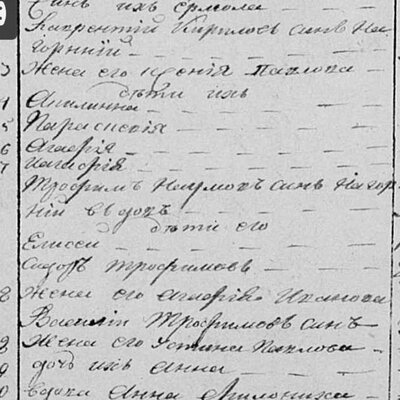 синъ ихъ Ермола
Лаврентій Кириловъ синъ На
горный
Жена его Ксенія Павлова
дѣти ихъ
Акилинна
Параскевія
Агафія
Трофимъ Наумовъ синъ Нагор
ній вдовъ
дѣти его
Елисей
Сидоръ Трофимовъ
Жена его Агафія Иванова
Василій Трофимовъ синъ
Жена его Устина Павлова
дочь ихъ Анна
вдова Анна